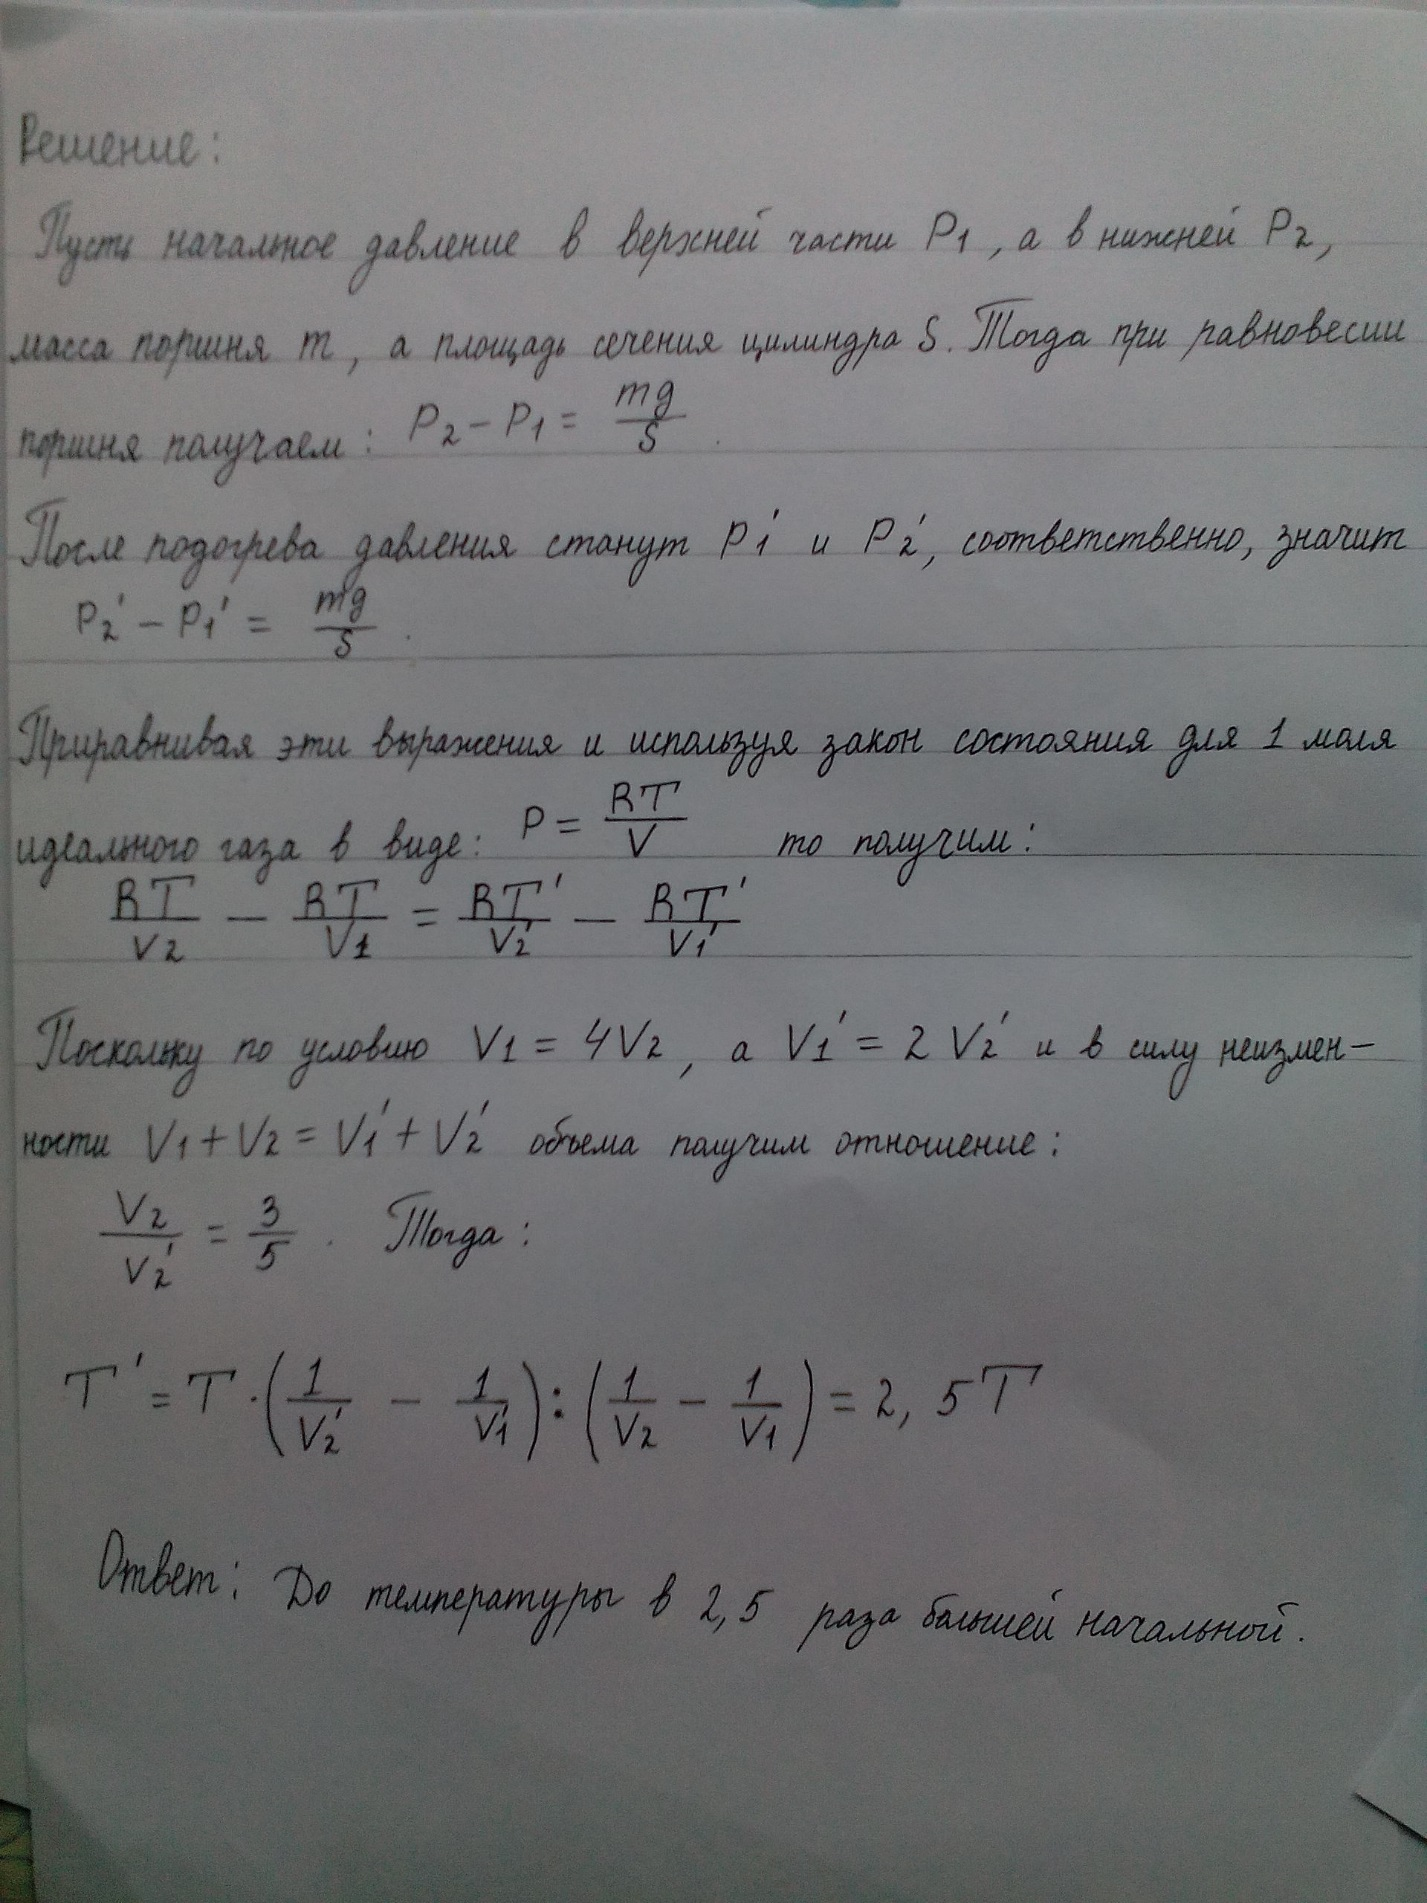 Решение:
Пусть начальное давление в верхней части P1, а в нижней P2,
масса поршня m, а площадь сечения цилиндра S. Тогда при равновесии
поршня получаем: P2 − P1 = mg/S.
После подогрева давления станут P1′ и P2′, соответственно, значит
P2′ − P1′ = mg/S.
Приравнивая эти выражения и используя закон состояния для 1 моля
идеального газа в виде: P = RT/V то получим:
RT/V2 − RT/V1 = RT′/V2′ − RT′/V1′
Поскольку по условию V1 = 4V2, а V1′ = 2V2′ и в силу неизмен-
ности V1 + V2 = V1′ + V2′ объема получим отношение:
V2/V2′ = 3/5. Тогда:
T′ = T · (1/V2′ − 1/V1′) : (1/V2 − 1/V1) = 2,5T
Ответ: До температуры в 2,5 раза большей начальной.